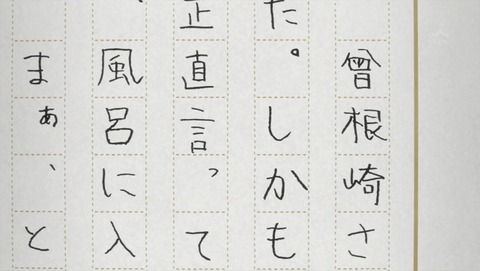 曾根崎さ
た。しかも
正直言って
、風呂に入
まぁ、と